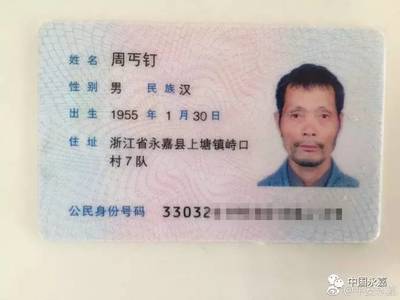 姓名 周丐钉
性别 男 民族 汉
出生 1955 年 1 月 30 日
住址 浙江省永嘉县上塘镇峙口
村7队
公民身份号码 33032
中国永嘉